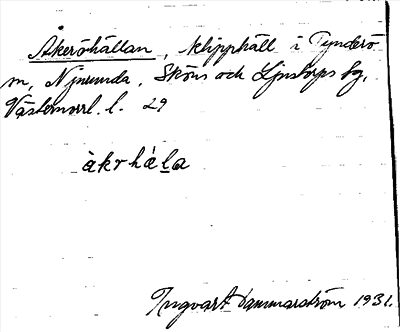 Åkeröhällan, klipphäll i Tynderö
m, Njurunda, Sköns och Ljustorps tg,
Västernorrl. l. 29
àkrhála
Ingvart Hammarström 1931.